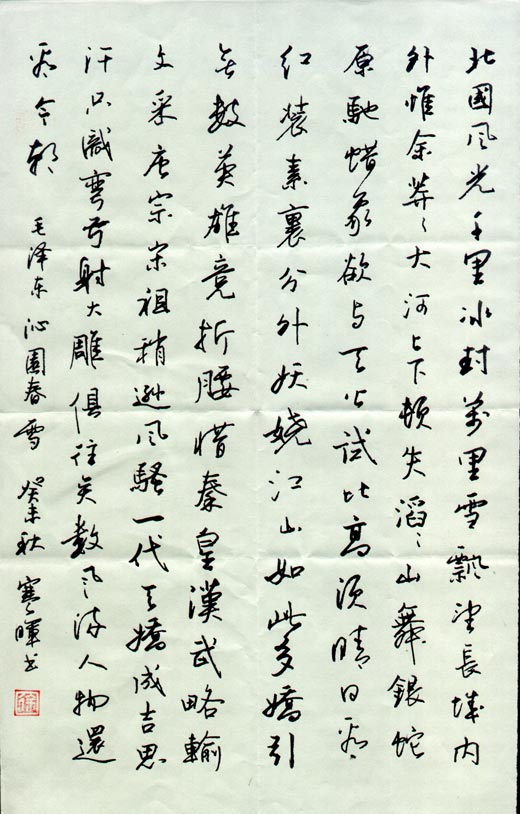 北國风光千里冰封萬里雪飄望長城内
外惟余莽〻大河上下頓失滔〻山舞銀蛇
原馳蜡象欲与天公試比高须晴日看
红装素裹分外妖娆江山如此多嬌引
無数英雄竞折腰惜秦皇漢武略輸
文采唐宗宋祖稍逊风騷一代天嬌成吉思
汗只識彎弓射大雕俱往矣数风流人物還
看今朝 毛泽东 沁園春 雪 癸未秋 寒暉书